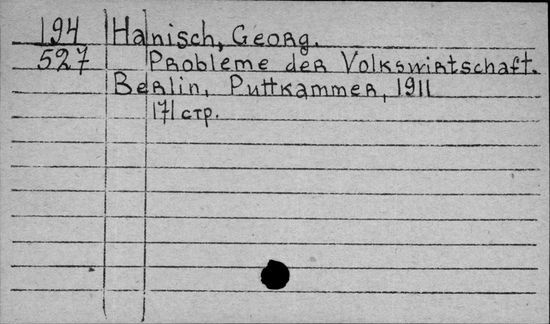 194 Hanisch, Georg.
527 Probleme der Volkswirtschaft.
Berlin, Puttkammer, 1911
171 стр.